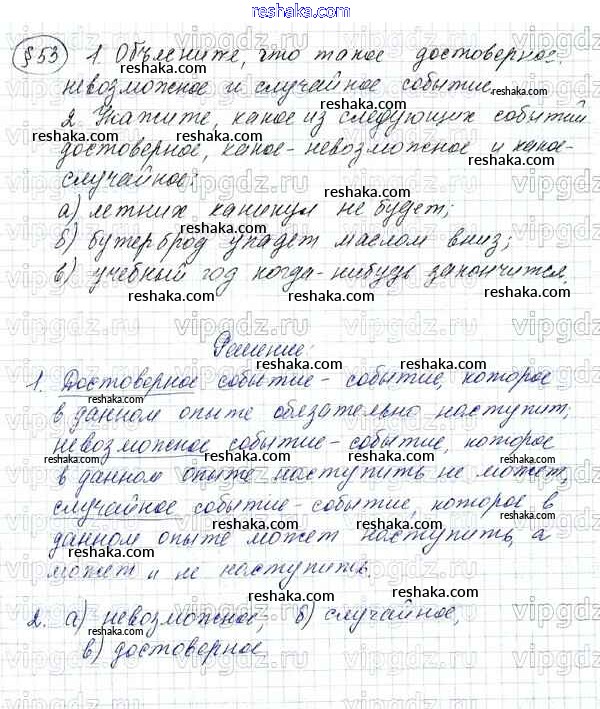 reshaka.com
§53 1. Объясните, что такое достоверное,
невозможное и случайное событие.
2. Укажите, какое из следующих событий
достоверное, какое - невозможное и какое -
случайное:
а) летних каникул не будет;
б) бутерброд упадет маслом вниз;
в) учебный год когда-нибудь закончится.
Решение:
1. Достоверное событие - событие, которое
в данном опыте обязательно наступит;
невозможное событие - событие, которое
в данном опыте наступить не может,
случайное событие - событие, которое в
данном опыте может наступить, а
может и не наступить.
2. а) невозможное; б) случайное,
в) достоверное